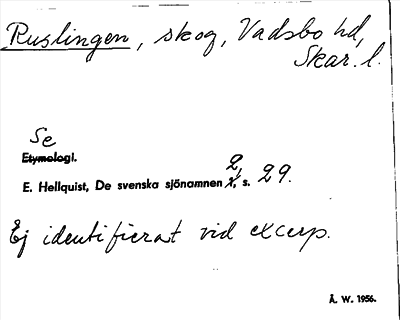 Ruslingen, skog, Vadsbo hd,
Skar. l.
Se
Etymologi.
E. Hellquist, De svenska sjönamnen 2, s. 29.
Ej identifierat vid excerp.
Å. W. 1956.